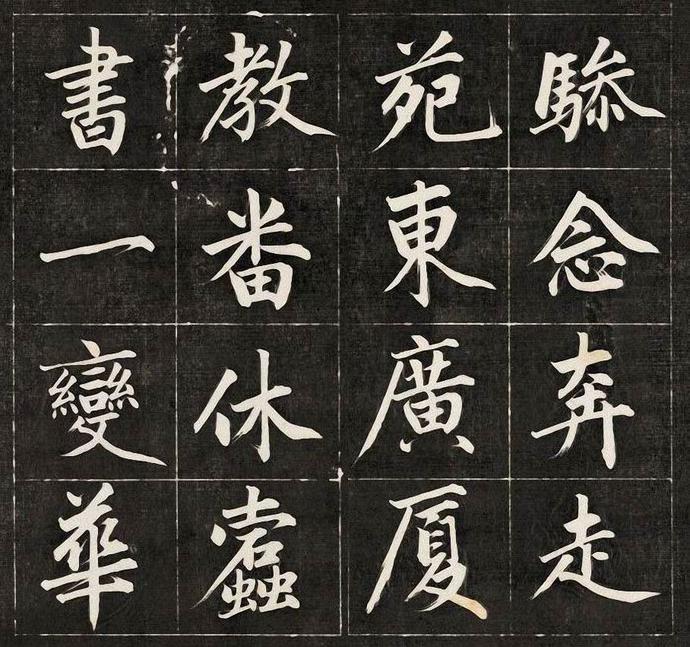 念奔走
苑東廣厦
教番休蠹
書一變華